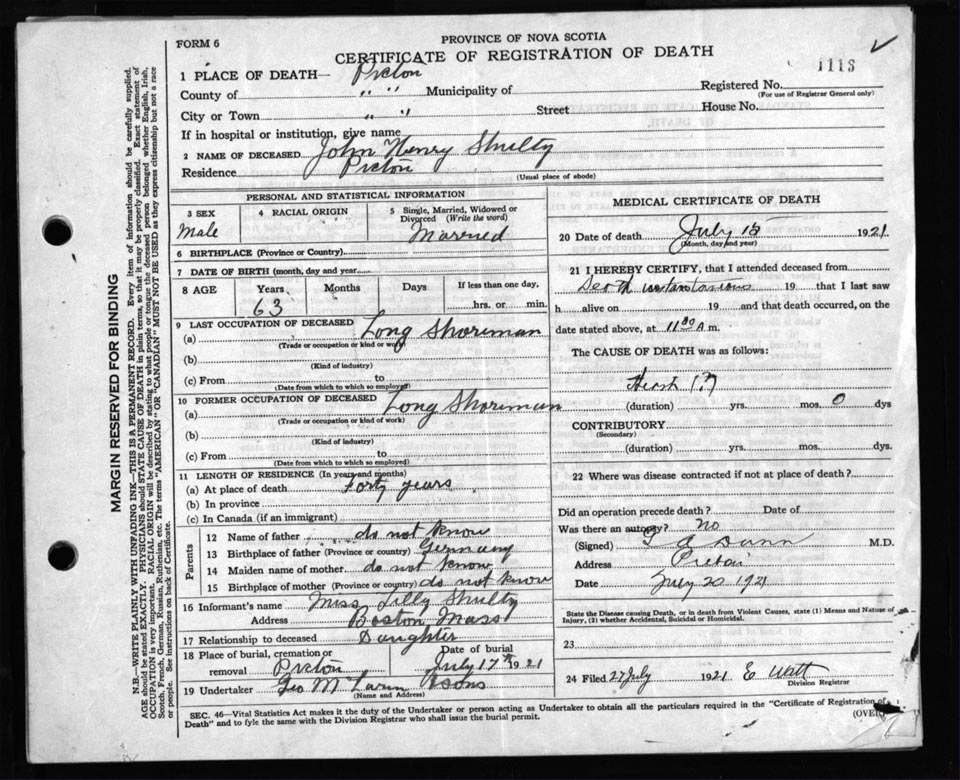 FORM 6
PROVINCE OF NOVA SCOTIA
CERTIFICATE OF REGISTRATION OF DEATH
1113
1 PLACE OF DEATH— Pictou
County of " " Municipality of
Registered No.
(For use of Registrar General only)
City or Town " " Street House No.
If in hospital or institution, give name
2 NAME OF DECEASED John Henry Shulty
Residence Pictou
(Usual place of abode)
PERSONAL AND STATISTICAL INFORMATION
3 SEX
Male
4 RACIAL ORIGIN
5 Single, Married, Widowed or Divorced (Write the word)
Married
6 BIRTHPLACE (Province or Country)
7 DATE OF BIRTH (month, day and year
8 AGE Years Months Days If less than one day,
63 hrs. or min.
9 LAST OCCUPATION OF DECEASED
(a) Long Shoriman
(Trade or occupation or kind of work)
(b)
(Kind of industry)
(c) From to
(Date from which to which so employed)
10 FORMER OCCUPATION OF DECEASED
(a) Long Shoriman
(Trade or occupation or kind of work)
(b)
(Kind of industry)
(c) From to
(Date from which to which so employed)
11 LENGTH OF RESIDENCE (In years and months)
(a) At place of death Forty years
(b) In province
(c) In Canada (if an immigrant)
Parents
12 Name of father do not know
13 Birthplace of father (Province or country) Germany
14 Maiden name of mother do not know
15 Birthplace of mother (Province or country) do not know
16 Informant's name Miss Lilly Shulty
Address Boston, Mass
17 Relationship to deceased Daughter
18 Place of burial, cremation or removal Pictou
Date of burial July 17th 1921
19 Undertaker Geo & Sons
(Name and Address)
MEDICAL CERTIFICATE OF DEATH
20 Date of death July 15 1921
(Month, day and year)
21 I HEREBY CERTIFY, that I attended deceased from
Death instantanious 19 that I last saw
h alive on 19 and that death occurred, on
date stated above, at 11 00 A m.
The CAUSE OF DEATH was as follows:
(?)
(duration) yrs. mos. 0 dys
CONTRIBUTORY
(Secondary)
(duration) yrs. mos. dys.
22 Where was disease contracted if not at place of death?
Did an operation precede death? Date of
Was there an autopsy? No
(Signed) Dunn M.D.
Address Pictou
Date July 20 1921
State the Disease causing Death, or in death from Violent Causes, state (1) Means and Nature of Injury, (2) whether Accidental, Suicidal or Homicidal.
23
24 Filed 27 July 1921 E Watt
Division Registrar
SEC. 46—Vital Statistics Act makes it the duty of the Undertaker or person acting as Undertaker to obtain all the particulars required in the "Certificate of Registration of
Death" and to fyle the same with the Division Registrar who shall issue the burial permit.
(OVER)
MARGIN RESERVED FOR BINDING
N.B.—WRITE PLAINLY WITH UNFADING INK—THIS IS A PERMANENT RECORD. Every item of information should be carefully supplied.
AGE should be stated EXACTLY. PHYSICIANS should STATE CAUSE OF DEATH in plain terms, so that it may be properly classified. Exact statement of
OCCUPATION is very important. RACIAL ORIGIN will be described by stating to what people or tongue the deceased person belonged whether English, Irish,
Scotch, French, German, Russian, Ruthenian, etc. The terms "AMERICAN" OR "CANADIAN" MUST NOT BE USED as they express citizenship but not a race
or people. See instructions on back of Certificate.